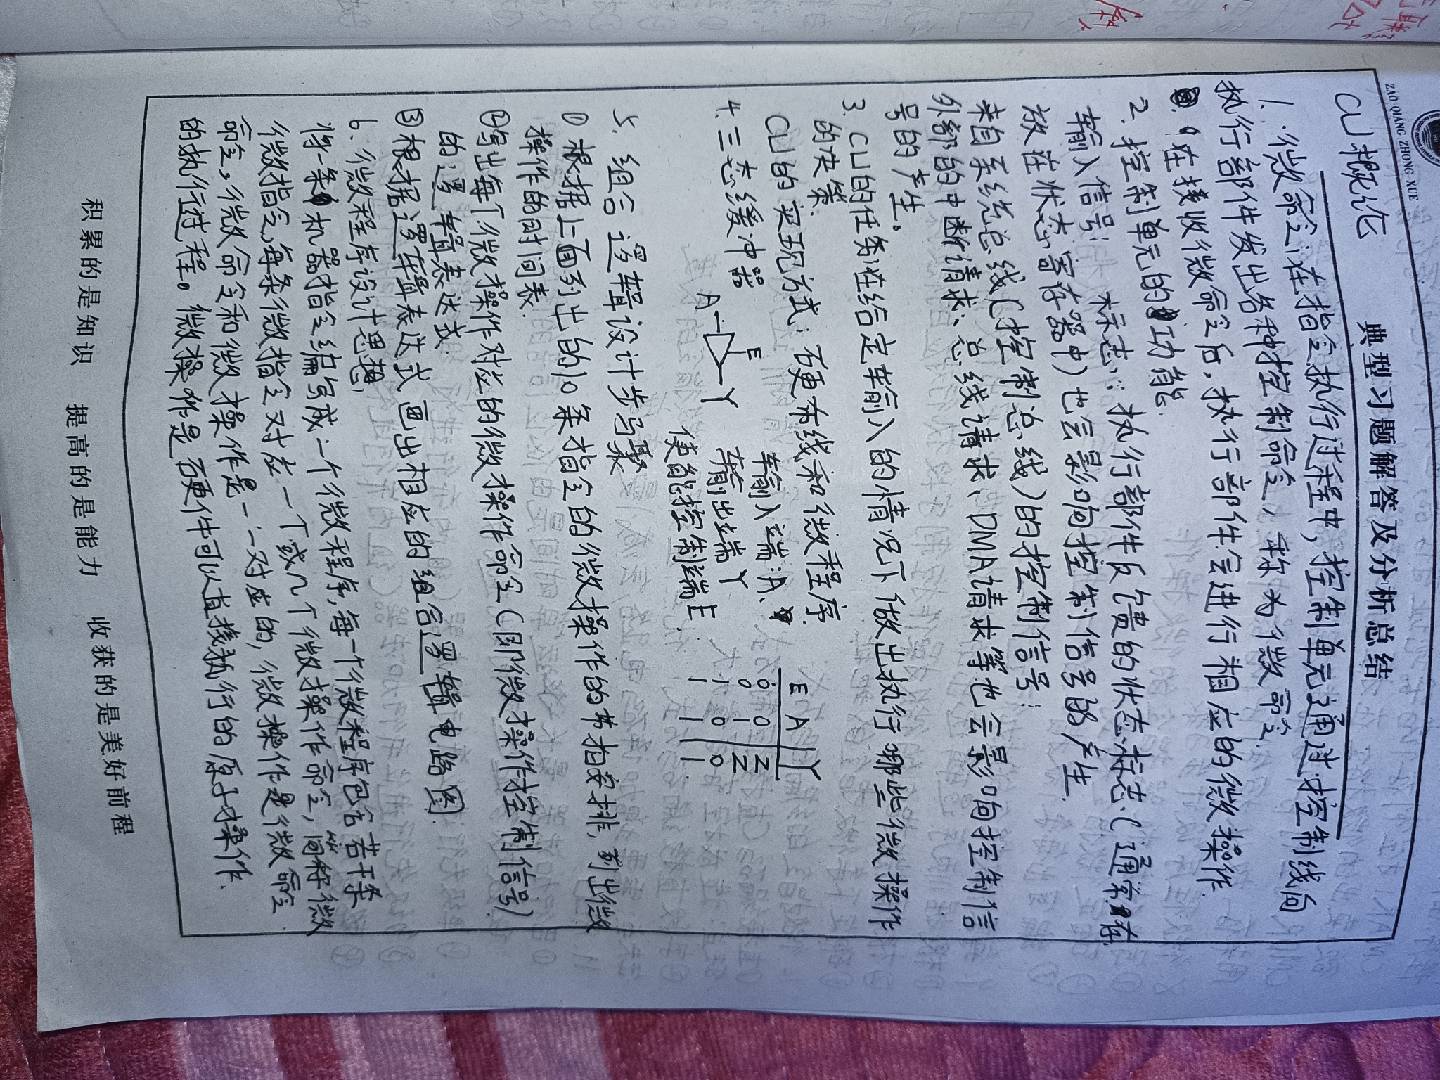 ZAO QIANG ZHONG XUE
典型习题解答及分析总结
CU概论
1. 微命令:在指令执行过程中,控制单元通过控制线向
执行部件发出各种控制命令,称为微命令.
在接收微命令后,执行部件会进行相应的微操作.
2. 控制单元的功能.
输入信号: 标志:执行部件反馈的状态标志(通常存
放在状态寄存器中)也会影响控制信号的产生.
来自系统总线(控制总线)的控制信号:
外部的中断请求、总线请求、DMA请求等也会影响控制信
号的产生。
3. CU的任务:在给定输入的情况下做出执行哪些微操作
的决策.
CU的实现方式:硬布线和微程序.
4. 三态缓冲器
E
A Y
输入端:A.
输出端 Y
使能控制端E.
E A Y
0 0 Z
0 1 Z
1 0 0
1 1 1
5. 组合逻辑设计步骤
① 根据上面列出的10条指令的微操作的节拍安排,列出微
操作的时间表.
②写出每个微操作对应的微操作命令(即微操作控制信号)
的逻辑表达式.
③根据逻辑表达式画出相应的组合逻辑电路图.
6. 微程序设计思想,
将一条机器指令编写成一个微程序,每一个微程序包含若干条
微指令,每条微指令对应一个或几个微操作命令,简称微
命令,微命令和微操作是一一对应的,微操作是微命令
的执行过程。微操作是硬件可以直接执行的原子操作.
积累的是知识 提高的是能力 收获的是美好前程